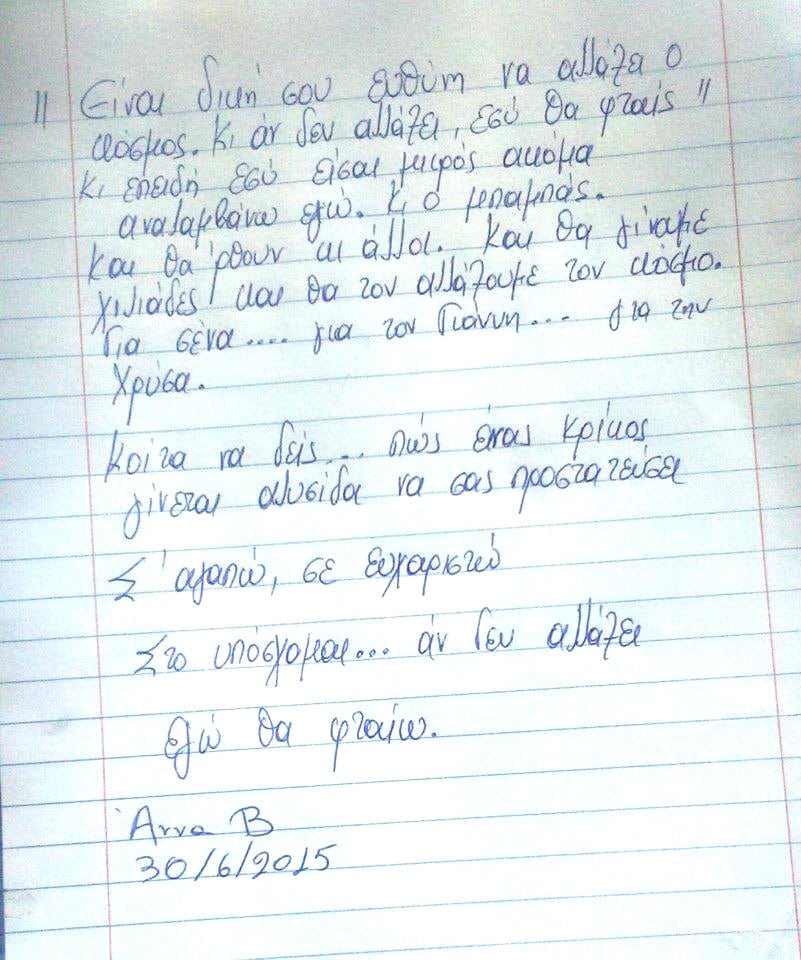 " Είναι δική σου ευθύνη να αλλάξει ο
κόσμος. Κι άν δεν αλλάξει, εσύ θα φταίς "
Κι επειδή εσύ είσαι μικρός ακόμα
αναλαμβάνω εγώ. Κι ο μπαμπάς.
Και θα ρθουν κι άλλοι. Και θα γίνουμε
χιλιάδες και θα τον αλλάξουμε τον κόσμο.
Για σένα.... για τον Γιάννη.... για την
Χρύσα.
Κοίτα να δείς... πώς ένας κρίκος
γίνεται αλυσίδα να σας προστατεύσει
Σ'αγαπώ, σε ευχαριστώ
Στο υπόσχομαι... άν δεν αλλάξει
εγώ θα φταίω.
Αννα Β
30/6/2015